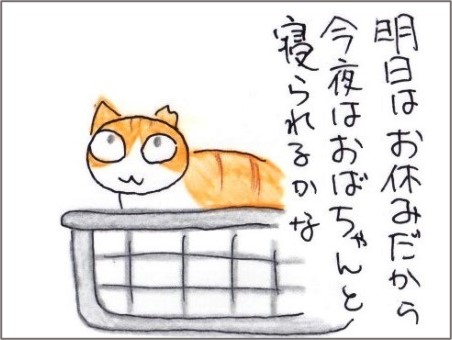 明日はお休みだから
今夜はおばちゃんと
寝られるかな